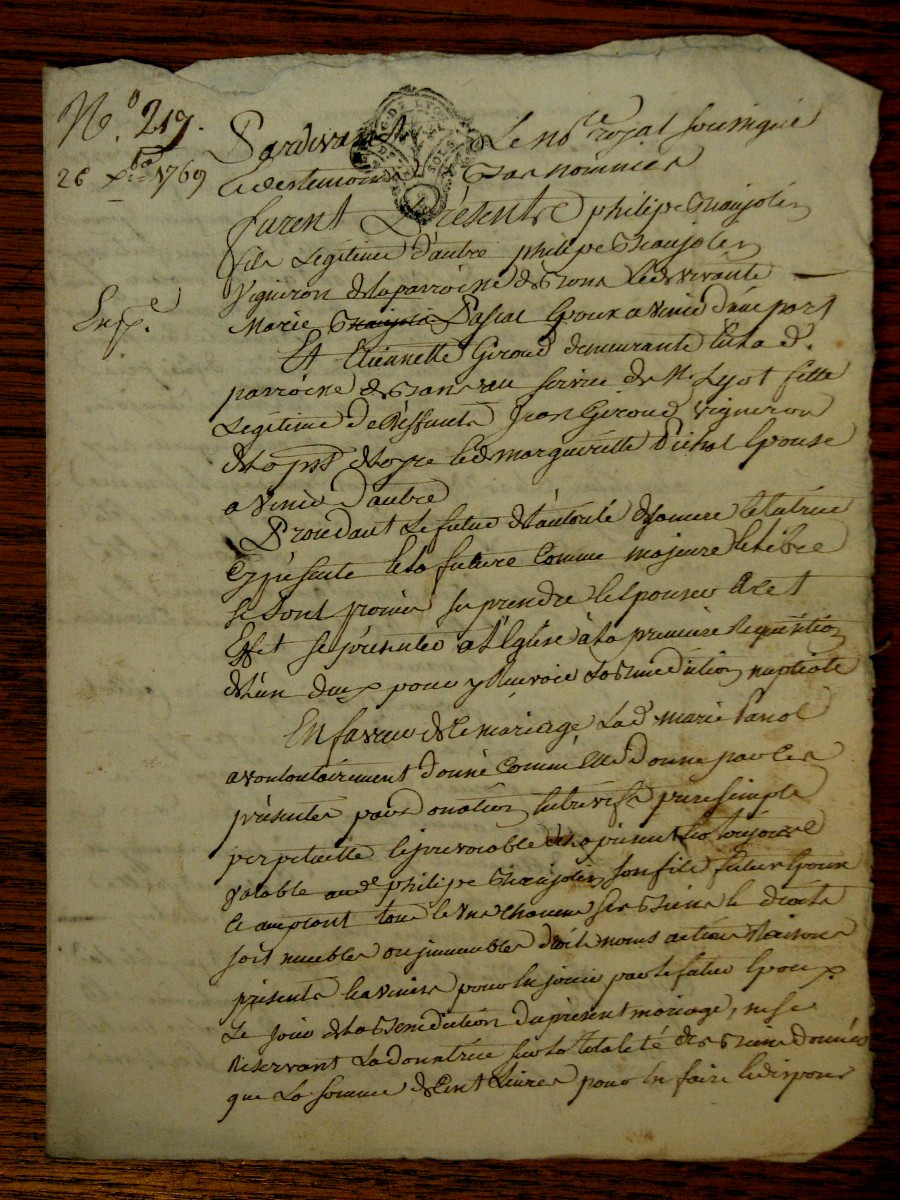 N.º 219.
26 xbre 1769
Expé.
Pardevant Le no.re royal soussigné
et des temoins bas nommés
furent Présents philipe Beaujolin
fils Legitime d'autre philipe Beaujolin
vigneron de la parroisse de et de vivante
Marie Pascal Epoux a venir d'une part
Et Etiennette Giroud demeurante en la d.
parroisse de au service de Mr Lyot fille
Legitime de deffunts Jean Giroud vigneron
de la psse et de margueritte Pichat Epouse
a venir d'autre
Procedant Le futur de l'autorité de sa mere
et la future comme majeure et libre
se sont promis se prendre en Epoux
Effet se présenter a l'Eglise à la premiere requisition
de l'un d'eux pour y recevoir la Bénédiction nuptiale
En faveur de ce mariage La d. marie Pascal
a volontairement donné comme Elle donne par ces
présentes par donation entre vifs pure simple
perpetuelle et irrevocable des a présent et a toujours
valable au d. philipe Beaujolin son fils futur Epoux
acceptant tous et uns chacuns ses Biens et droits
soit meubles ou immeubles droits noms actions et raisons
présents et a venirs pour en jouir par le futur Epoux
Le jour de la Benediction du présent mariage, ne se
Reservant La donatrice sur la Totalité des Biens donnés
que La somme de Cent Livres pour en faire et disposer